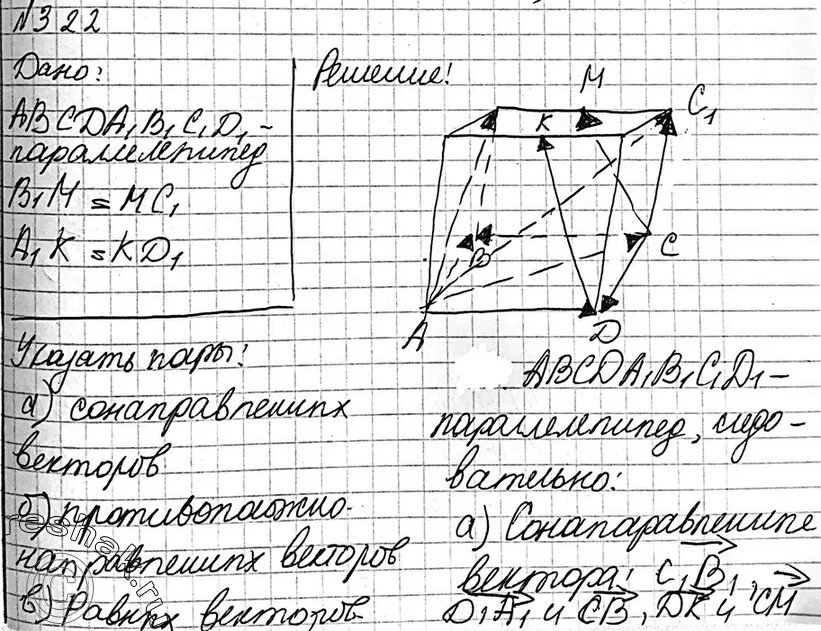 №322
Дано:
ABCDA₁B₁C₁D₁ –
параллелепипед
B₁M = MC₁
A₁K = KD₁
Указать пары:
а) сонаправленных
векторов
б) противоположно-
направленных векторов
в) Равных векторов
Решение:
M
C₁
K
B
C
A
D
ABCDA₁B₁C₁D₁ –
параллелепипед, следо-
вательно:
а) Сонаправление
вектора: C₁B₁,
D₁A₁ и CB, DK и CM
reshak.ru